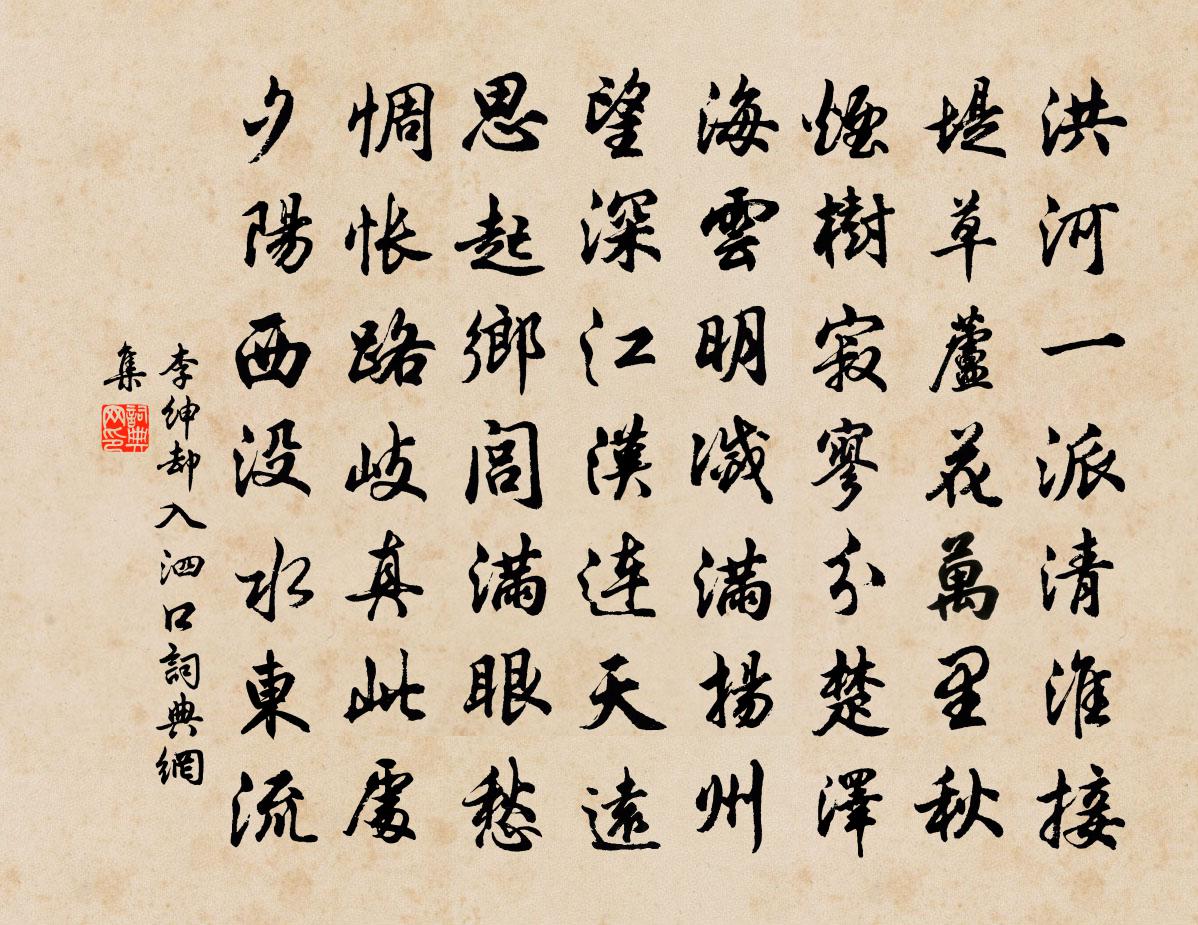 洪河一派清淮接
堤草蘆花萬里秋
煙樹寂寥分楚澤
海雲明滅滿揚州
望深江漢連天遠
思起鄉閭滿眼愁
惆怅路歧真此處
夕陽西没水東流
李紳却入泗口詞典網
集
詞典网印